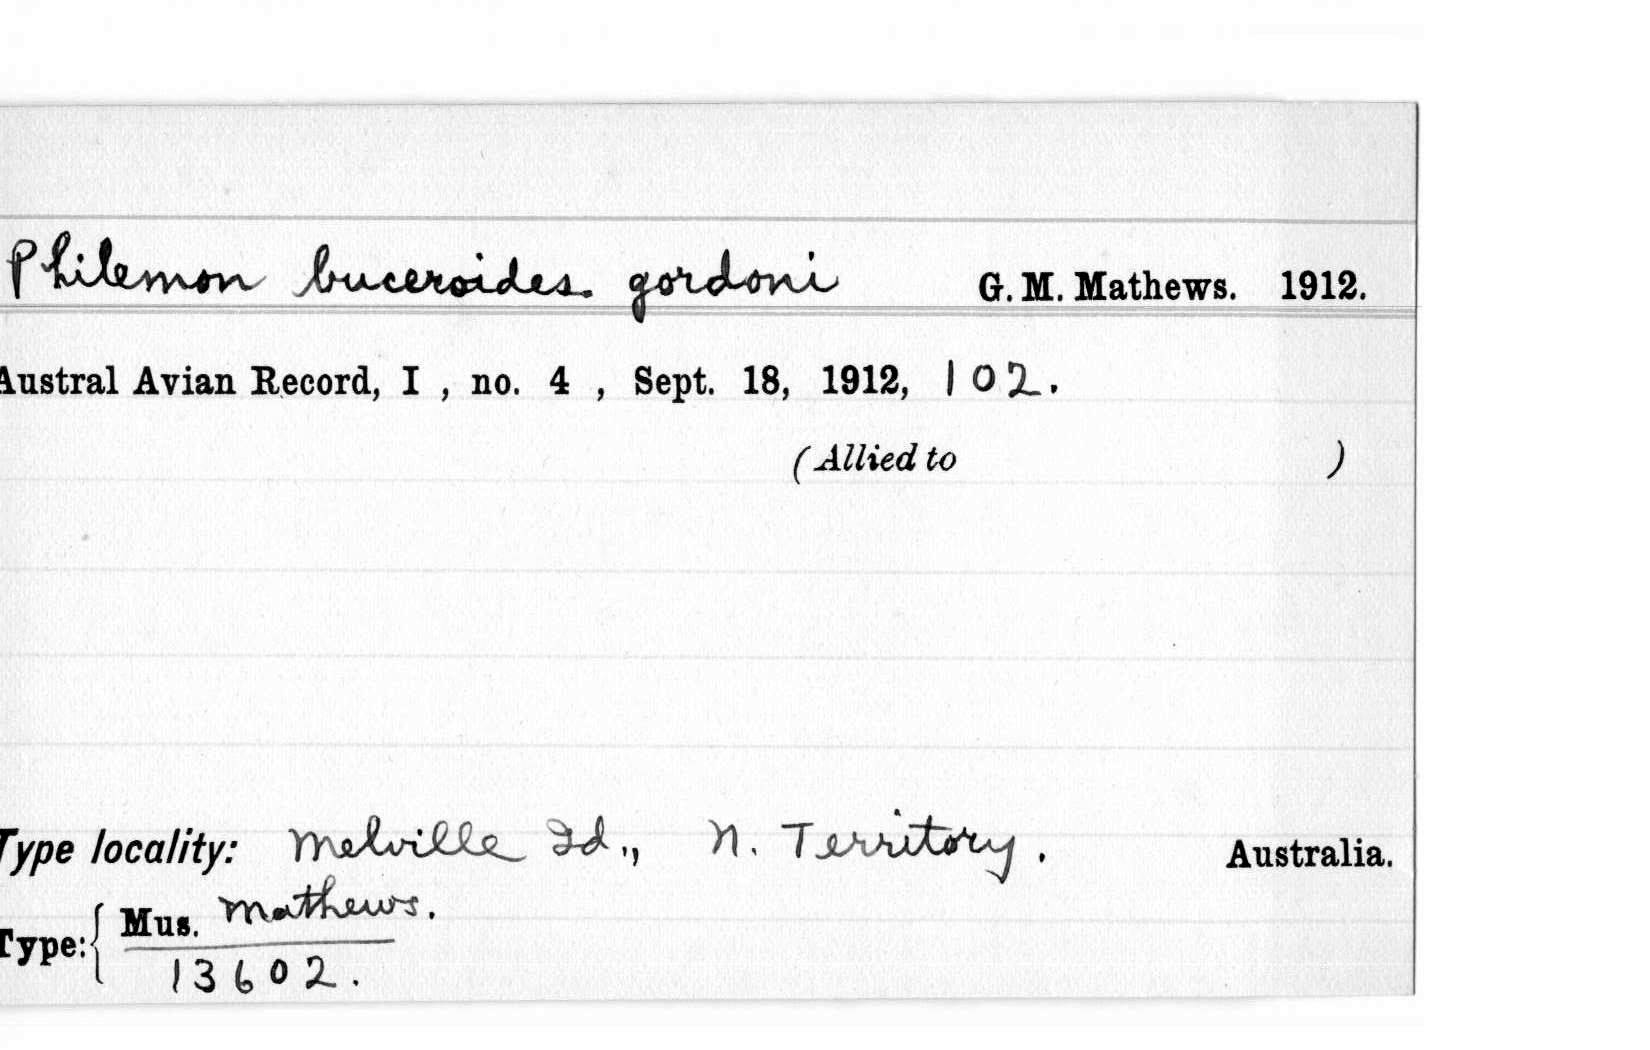 Philemon buceroides. gordoni G. M. Mathews. 1912.
Austral Avian Record, I , no. 4 , Sept. 18, 1912, 102.
(Allied to )
Type locality: Melville Id., N. Territory. Australia.
Type: { Mus. Mathews.
13602.